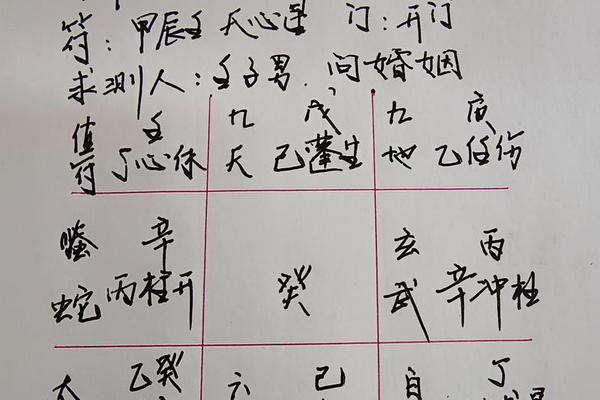 符：甲辰壬 天心逢 门：开门
求测人：壬子男．问婚姻
值 壬 九 戊 九 庚
符 丁心休 天 己蓬生 地 乙任伤
螣 辛 玄 丙
蛇 丙柱开 癸 武 辛冲杜
太 乙癸 六 己 白 丁